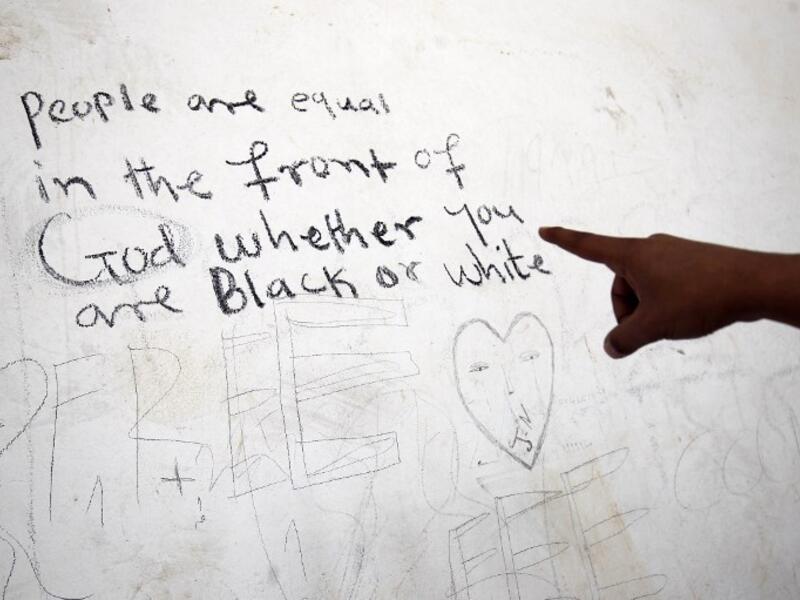 people are equal
in the front of
God whether you
are Black or white
J-N